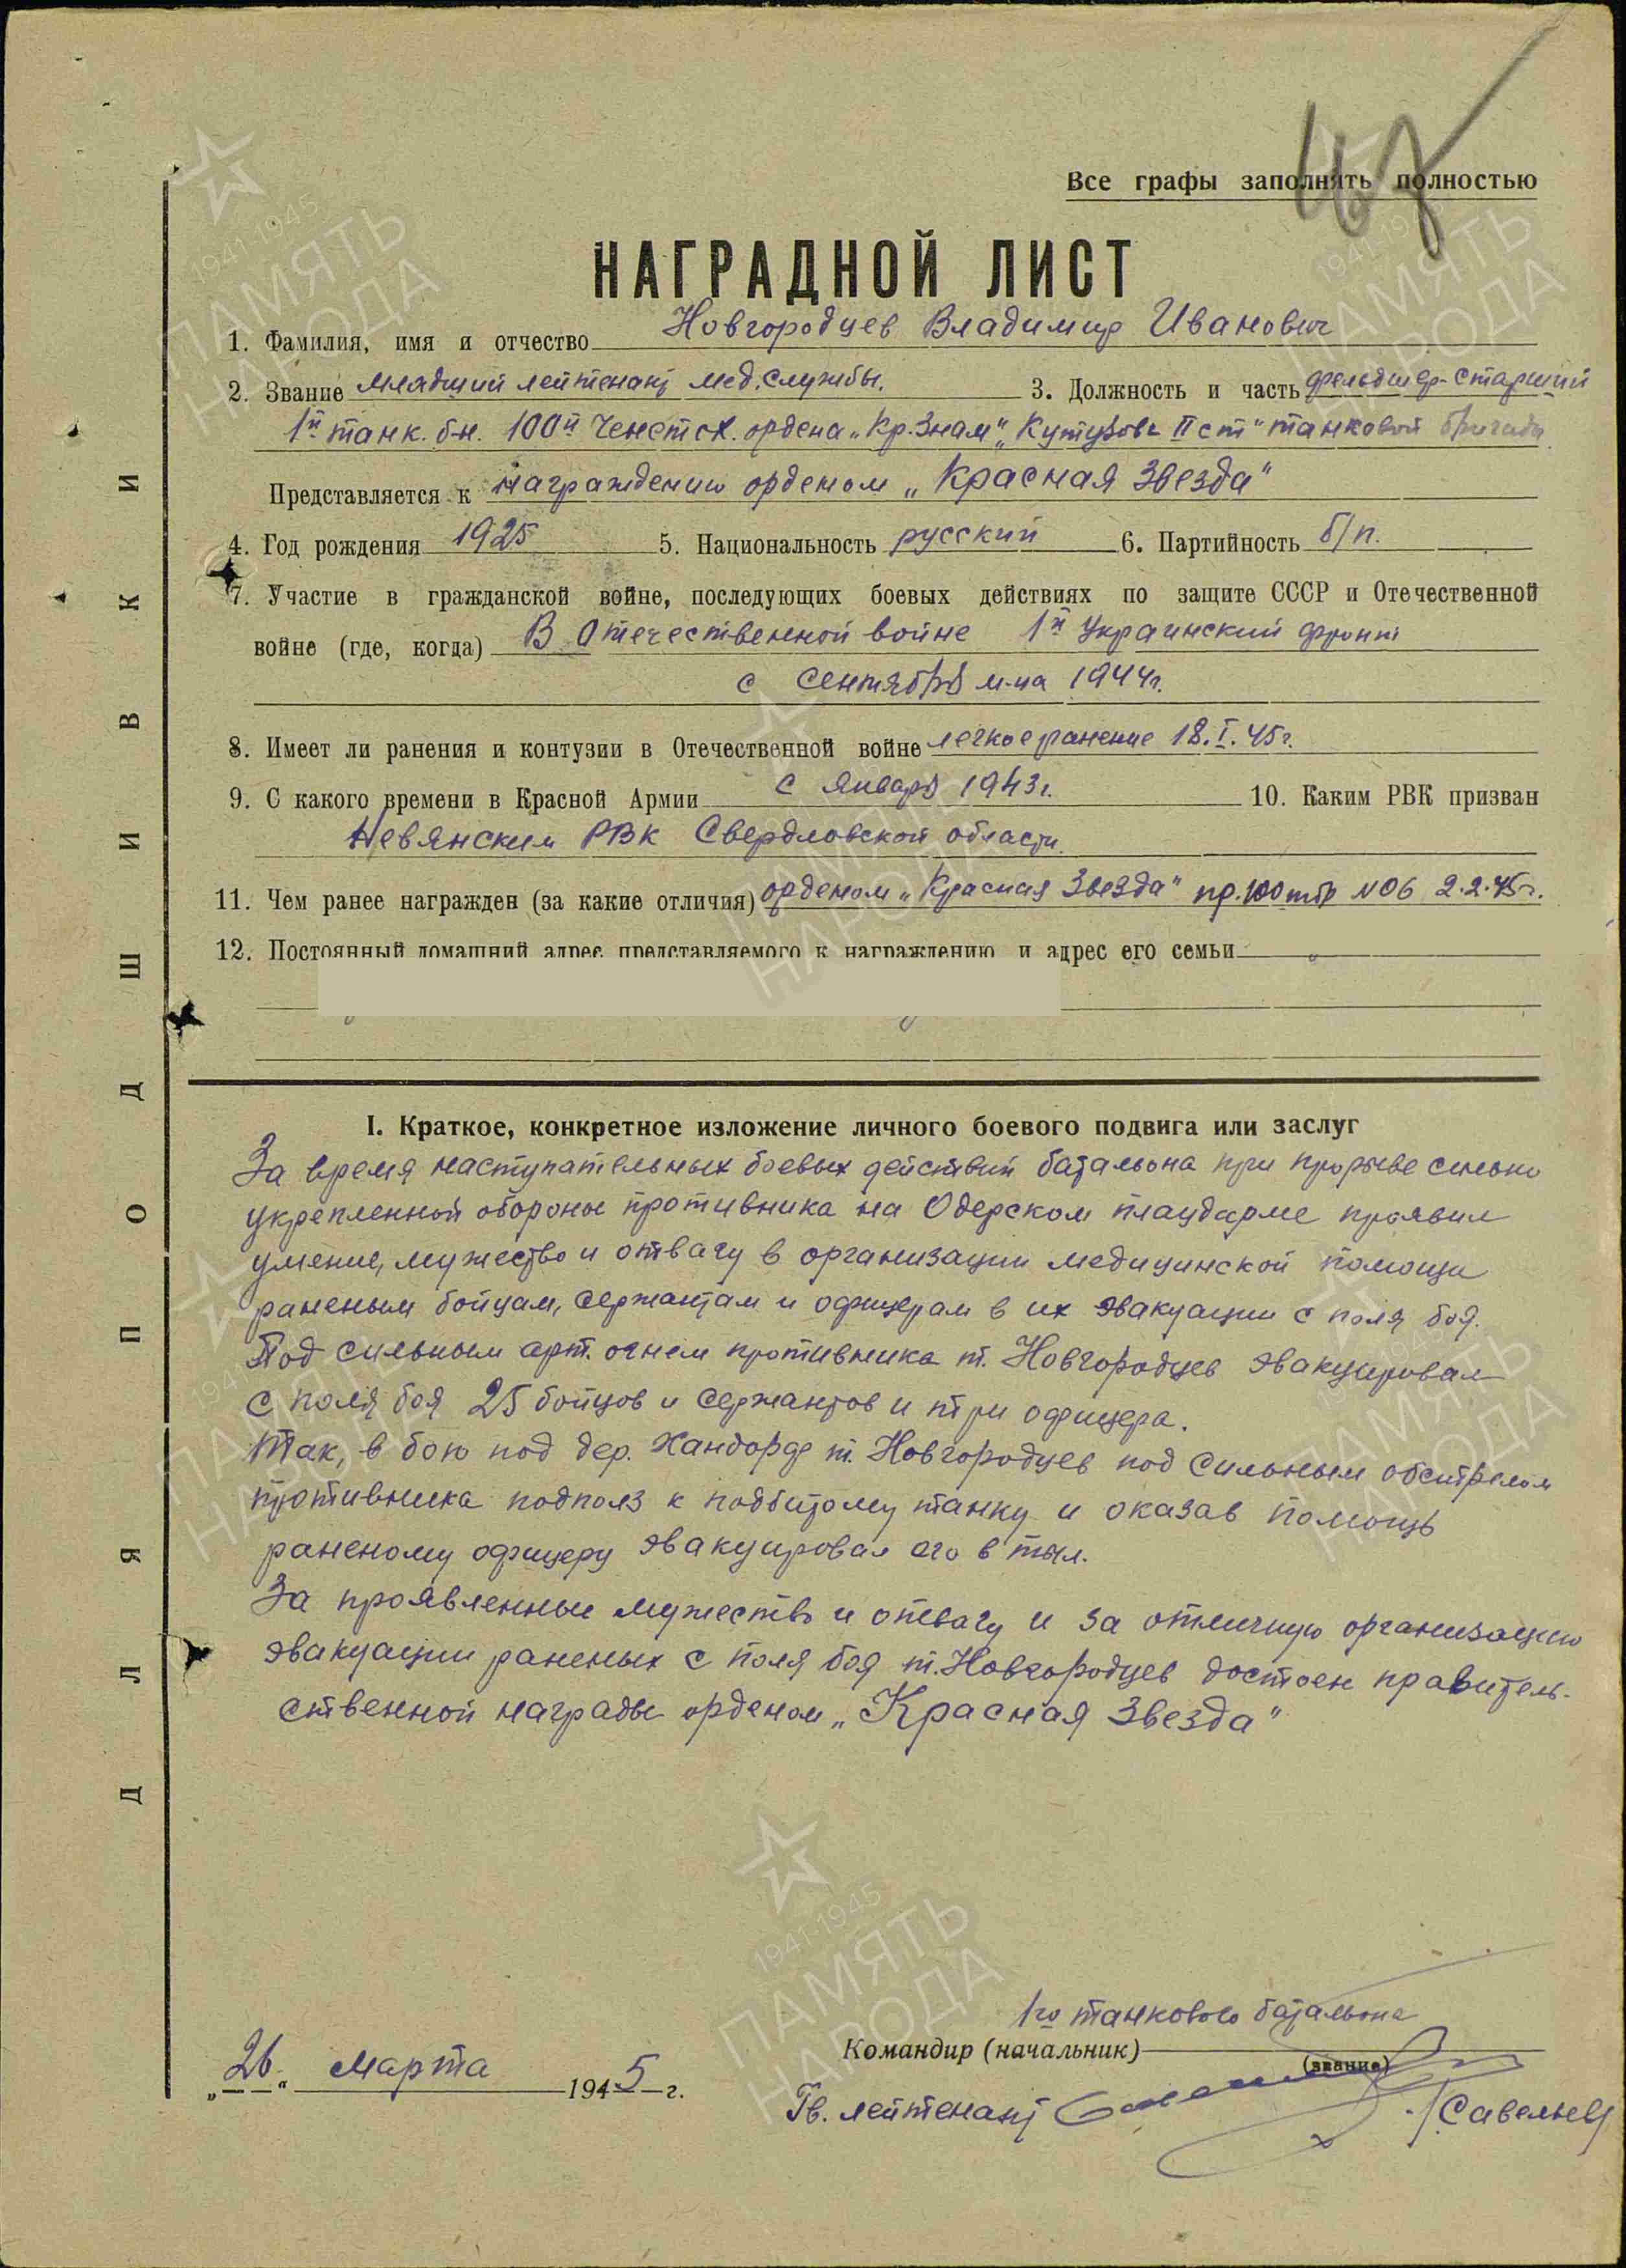 47
Все графы заполнять полностью
НАГРАДНОЙ ЛИСТ
1. Фамилия, имя и отчество Новгородцев Владимир Иванович
2. Звание младший лейтенант мед. службы. 3. Должность и часть фельдшер-старший
1й танк. б-н. 100й Ченстох. ордена „Кр. Знам“ „Кутузова II ст“ танковой бригады
Представляется к награждению орденом „Красная Звезда“
4. Год рождения 1925 5. Национальность русский 6. Партийность б/п.
7. Участие в гражданской войне, последующих боевых действиях по защите СССР и Отечественной
войне (где, когда) В Отечественной войне 1й Украинский фронт
с сентября м-ца 1944г.
8. Имеет ли ранения и контузии в Отечественной войне легкое ранение 18.I.45г.
9. С какого времени в Красной Армии с января 1943г. 10. Каким РВК призван
Невянским РВК Свердловской области.
11. Чем ранее награжден (за какие отличия) орденом „Красная Звезда“ пр. 100 тбр №06 2.2.45г.
12. Постоянный домашний адрес представляемого к награждению и адрес его семьи
I. Краткое, конкретное изложение личного боевого подвига или заслуг
За время наступательных боевых действий батальона при прорыве сильно
укрепленной обороны противника на Одерском плацдарме проявил
умение, мужество и отвагу в организации медицинской помощи
раненым бойцам, сержантам и офицерам в их эвакуации с поля боя.
Под сильным арт. огнем противника т. Новгородцев эвакуировал
с поля боя 25 бойцов и сержантов и три офицера.
Так, в бою под дер. т. Новгородцев под сильным обстрелом
противника подполз к подбитому танку и оказав помощь
раненому офицеру эвакуировал его в тыл.
За проявленные мужество и отвагу и за отличную организацию
эвакуации раненых с поля боя т. Новгородцев достоен правитель-
ственной награды орденом „Красная Звезда“
1го танкового батальона
Командир (начальник)
(звание)
„26“ марта 1945 г.
Гв. лейтенант /Савельев/
ДЛЯ ПОДШИВКИ
1941-1945
ПАМЯТЬ
НАРОДА